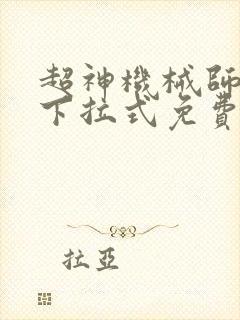 超神機械師
下拉式免費
拉亞